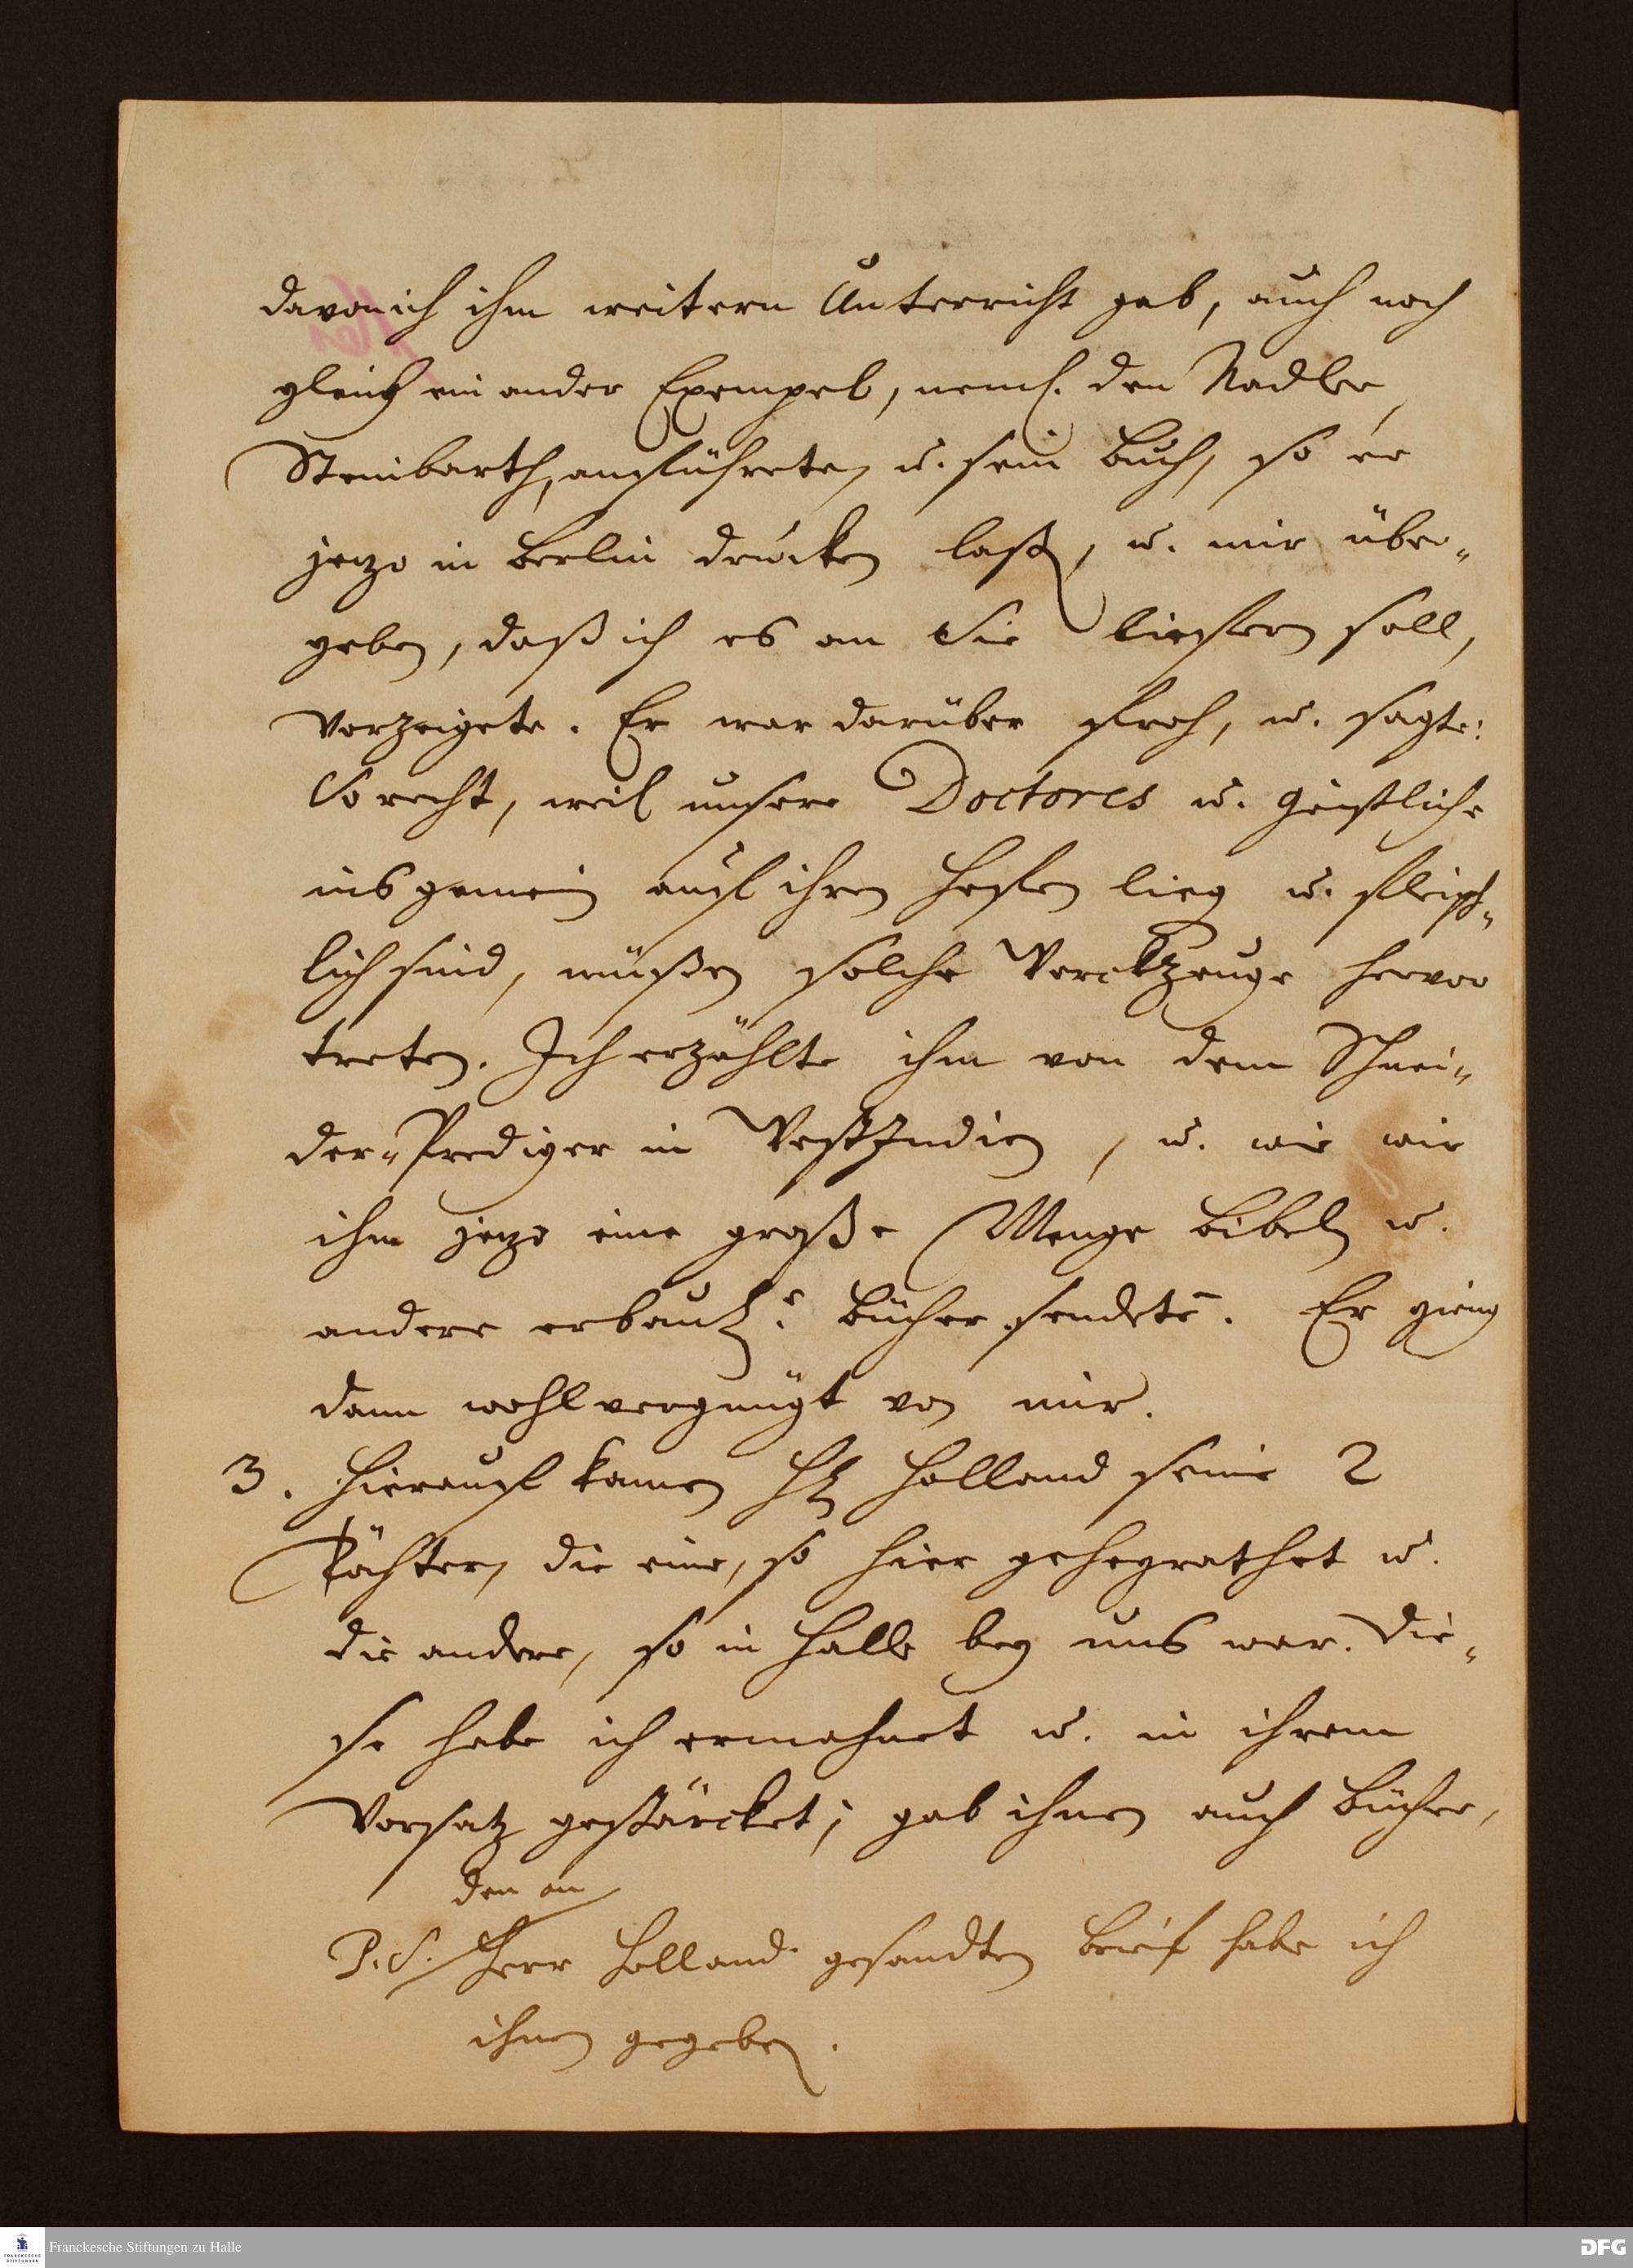 davon ich ihm weitern Unterricht gab, auch noch
gleich ein ander Exempel, neml. den Nadler
Steinbarth, anführete, u. sein Buch, so er
jezo in Berlin drucken laßen, u. mir über„
geben, daß ich es an Sie liefern soll,
vorzeigete. Er war darüber froh, u. sagte:
So recht, weil unsere Doctores u. Geistliche
ins gemein auf ihren Hefen liegen u. fleisch„
lich sind, müßen solche Werckzeuge hervor
treten. Ich erzählte ihm von dem Schnei„
der„Prediger in WestIndien, u. wie wir
ihm jezo eine große Menge Bibeln u.
andere erbaul. Bücher sendeten. Er gieng
dann wohl vergnügt von mir.
3. Hierauf kamen H. Holland seine 2
Töchter, die eine, so hier geheyrathet u.
die andere, so in Halle bey uns war. Die„
se habe ich ermahnet u. in ihrem
Vorsatz gestärcket; gab ihnen auch Bücher,
den an
P.S. Herr Holland gesandten Brief habe ich
ihnen gegeben.
Franckesche Stiftungen zu Halle
DFG